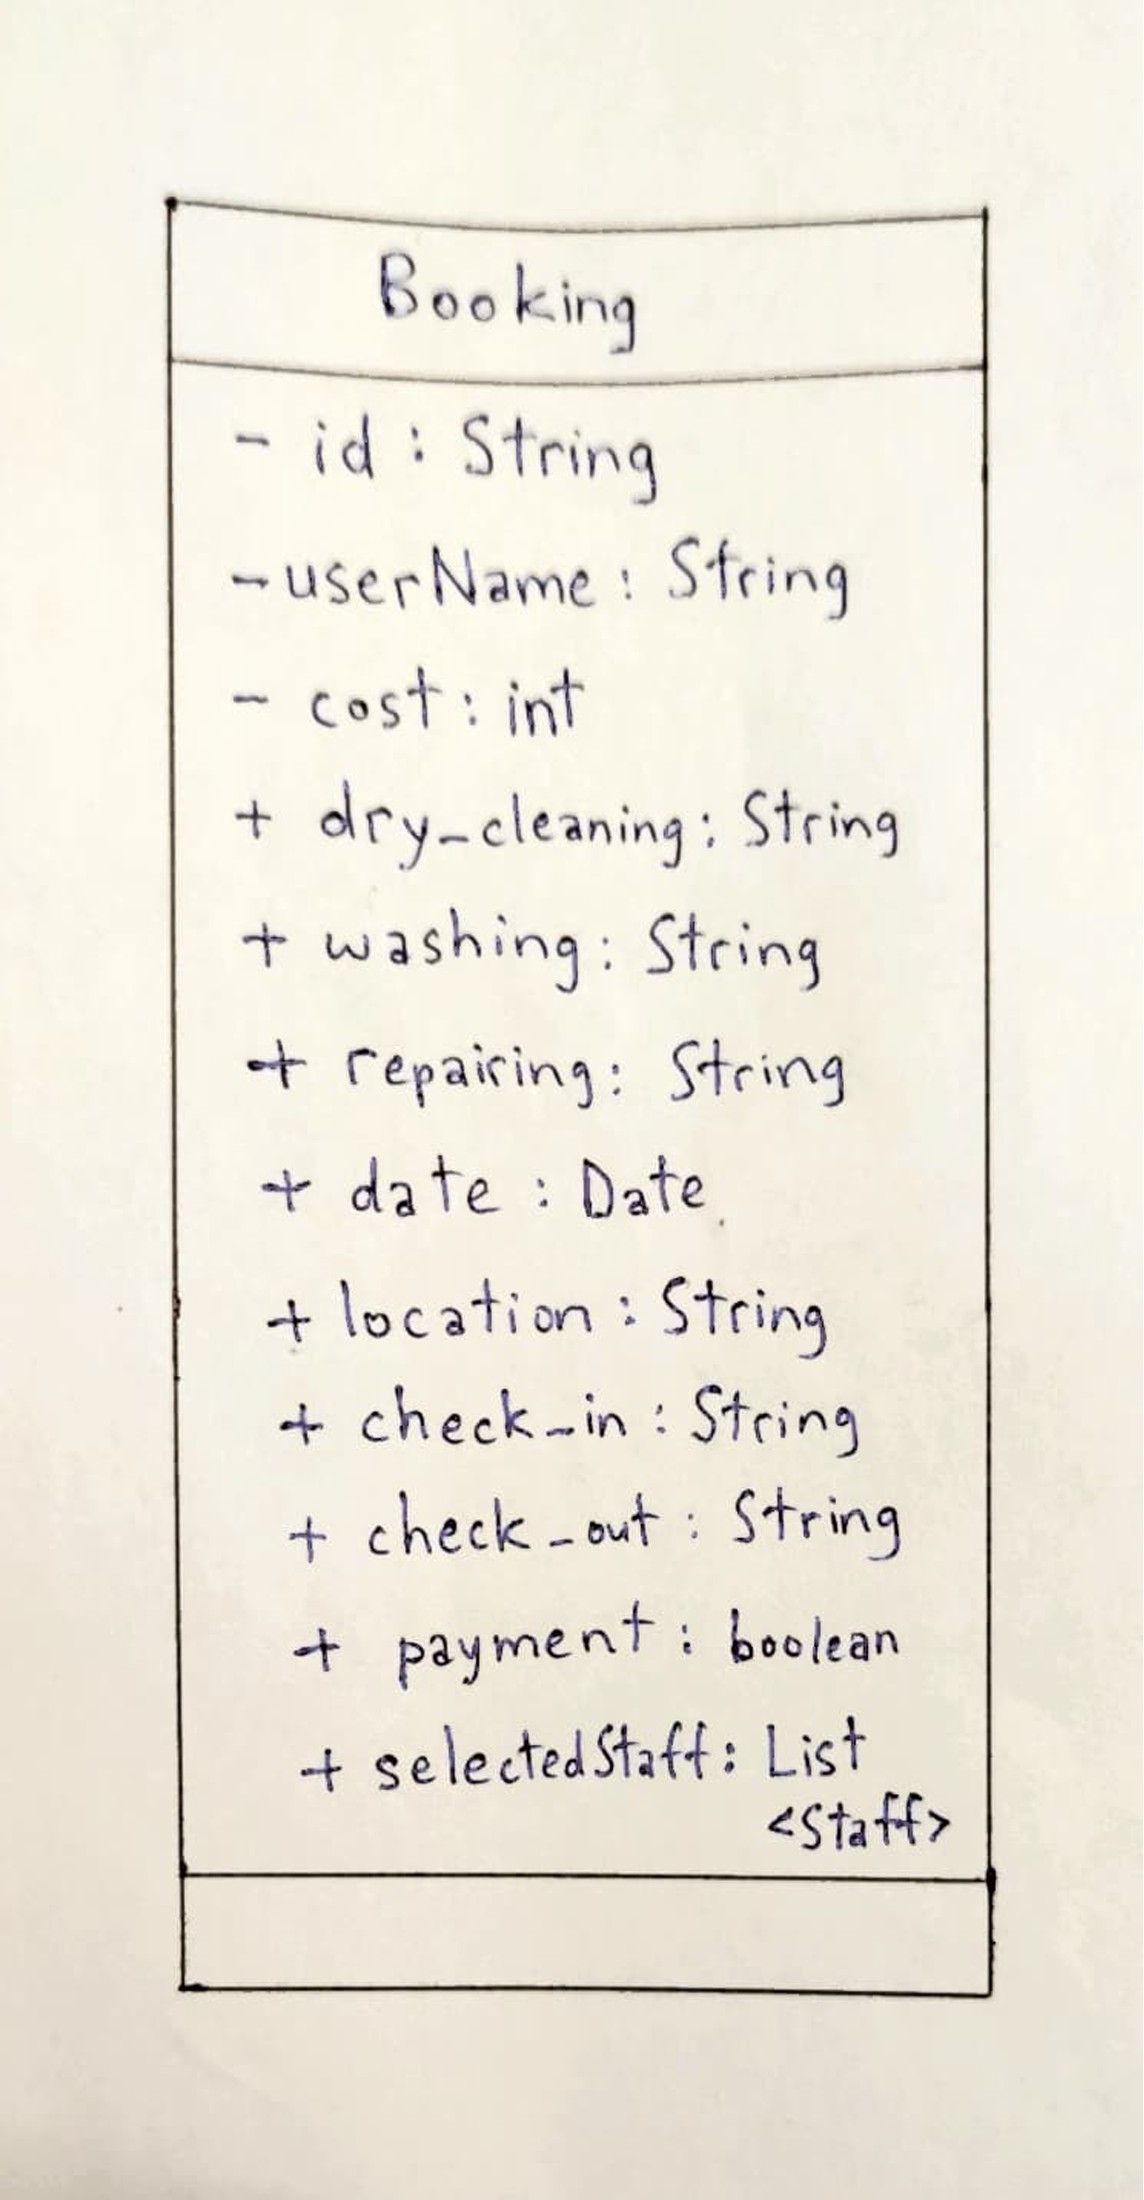 Booking
- id : String
- userName : String
- cost : int
+ dry_cleaning : String
+ washing : String
+ repairing : String
+ date : Date
+ location : String
+ check_in : String
+ check_out : String
+ payment : boolean
+ selectedStaff : List
<Staff>